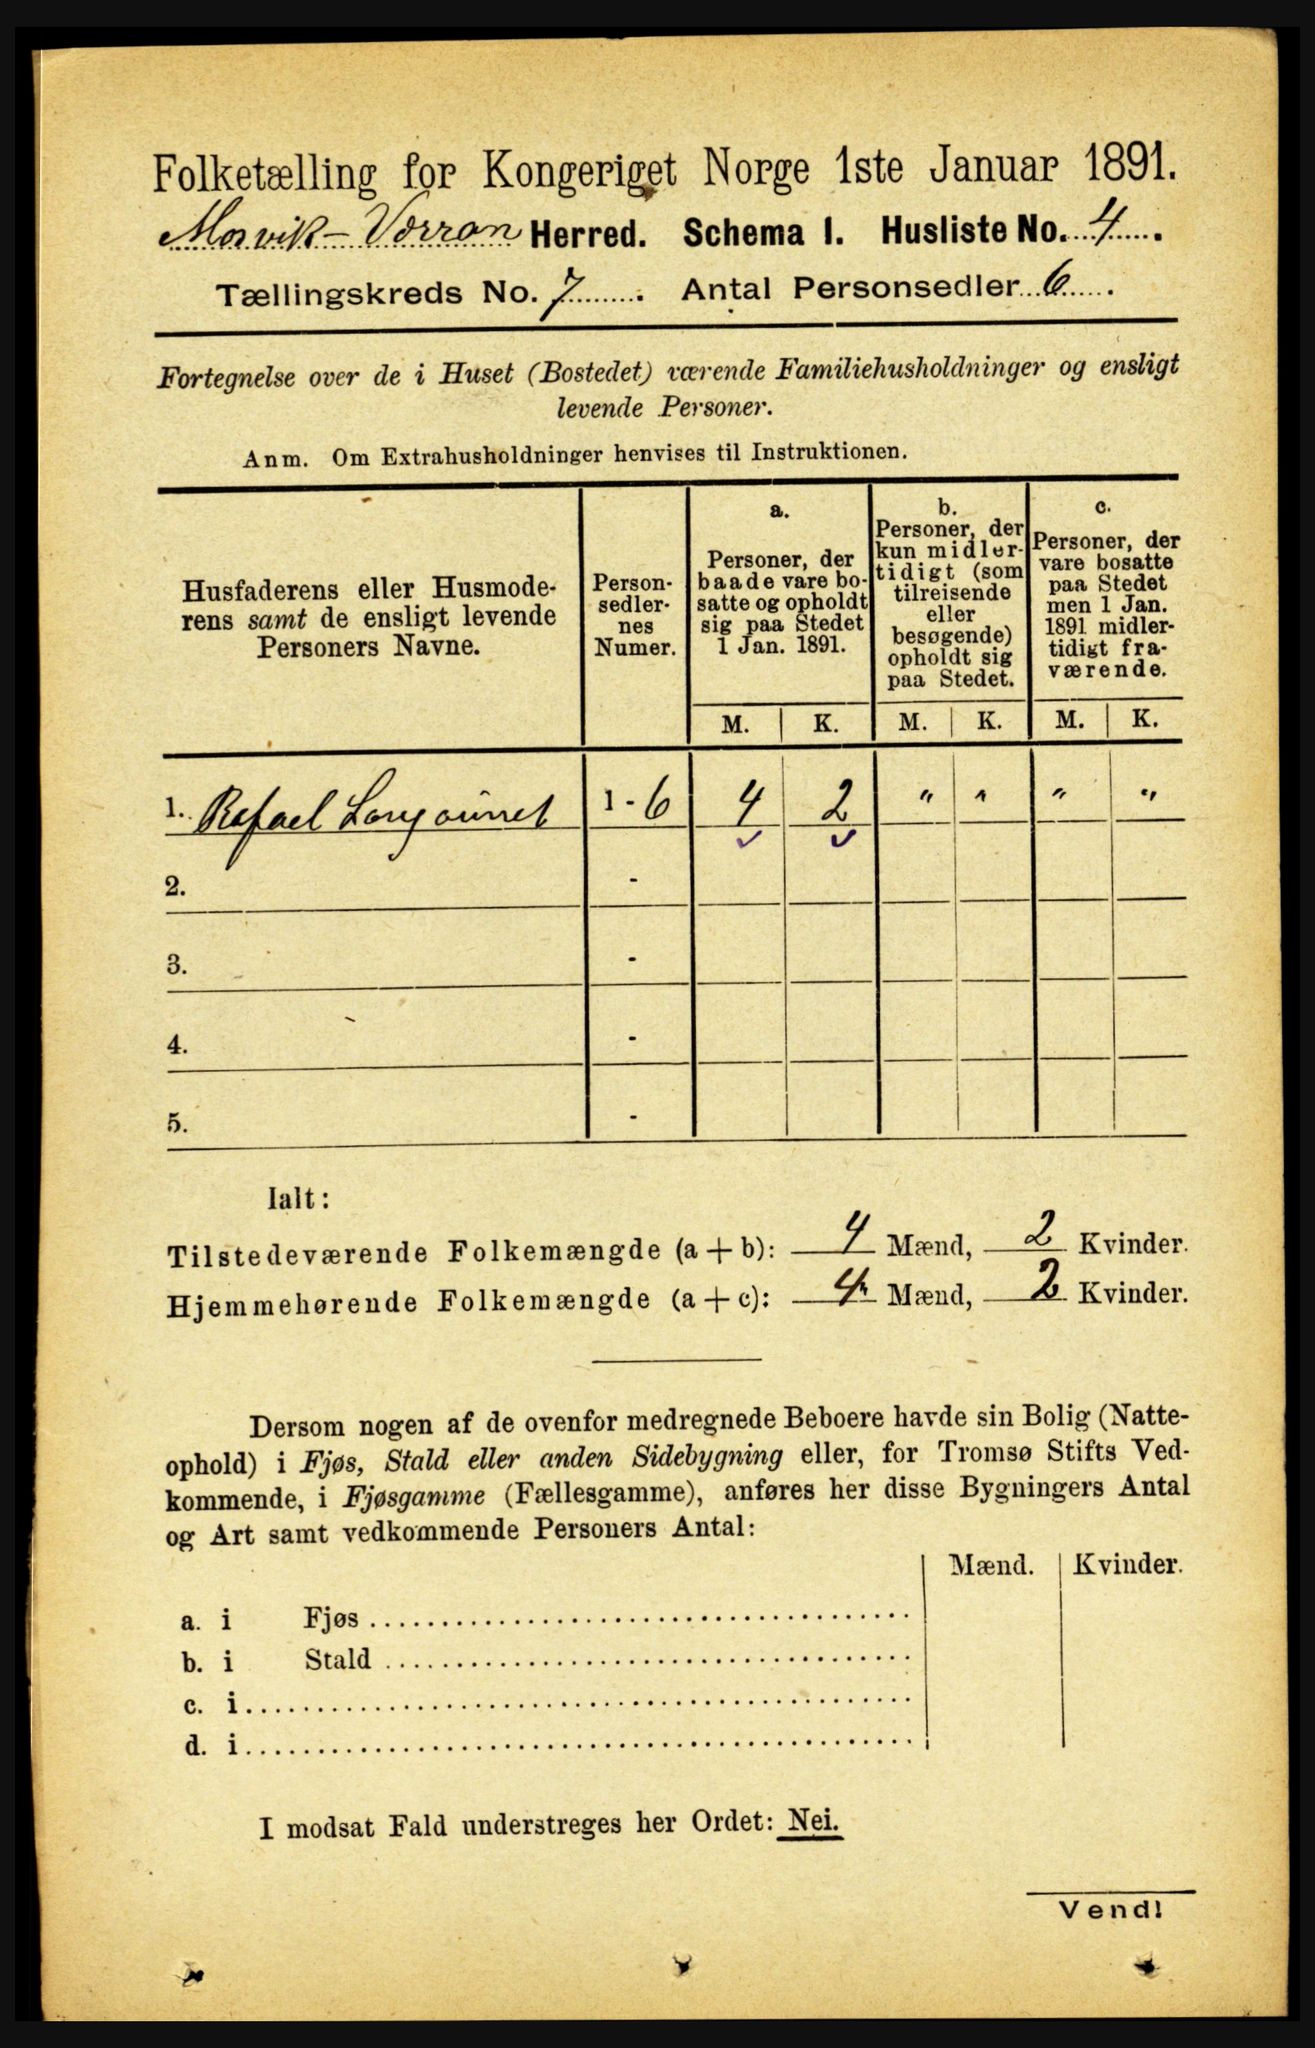 Folketælling for Kongeriget Norge 1ste Januar 1891.
Mosvik-Verran Herred. Schema I. Husliste No. 4.
Tællingskreds No. 7. Antal Personsedler 6.
Fortegnelse over de i Huset (Bostedet) værende Familiehusholdninger og ensligt
levende Personer.
Anm. Om Extrahusholdninger henvises til Instruktionen.
Husfaderens eller Husmode-
rens samt de ensligt levende
Personers Navne.
Person-
sedler-
nes
Numer.
a.
Personer, der
baade vare bo-
satte og opholdt
sig paa Stedet
1 Jan. 1891.
b.
Personer, der
kun midler-
tidigt (som
tilreisende
eller
besøgende)
opholdt sig
paa Stedet.
c.
Personer, der
vare bosatte
paa Stedet
men 1 Jan.
1891 midler-
tidigt fra-
værende.
M. K. M. K. M. K.
1. Rafael 1 - 6 4 2 " " " "
2. -
3. -
4. -
5. -
Ialt:
Tilstedeværende Folkemængde (a + b): 4 Mænd, 2 Kvinder.
Hjemmehørende Folkemængde (a + c): 4 Mænd, 2 Kvinder.
Dersom nogen af de ovenfor medregnede Beboere havde sin Bolig (Natte-
ophold) i Fjøs, Stald eller anden Sidebygning eller, for Tromsø Stifts Ved-
kommende, i Fjøsgamme (Fællesgamme), anføres her disse Bygningers Antal
og Art samt vedkommende Personers Antal:
Mænd. Kvinder.
a. i Fjøs
b. i Stald
c. i
d. i
I modsat Fald understreges her Ordet: Nei.
Vend!